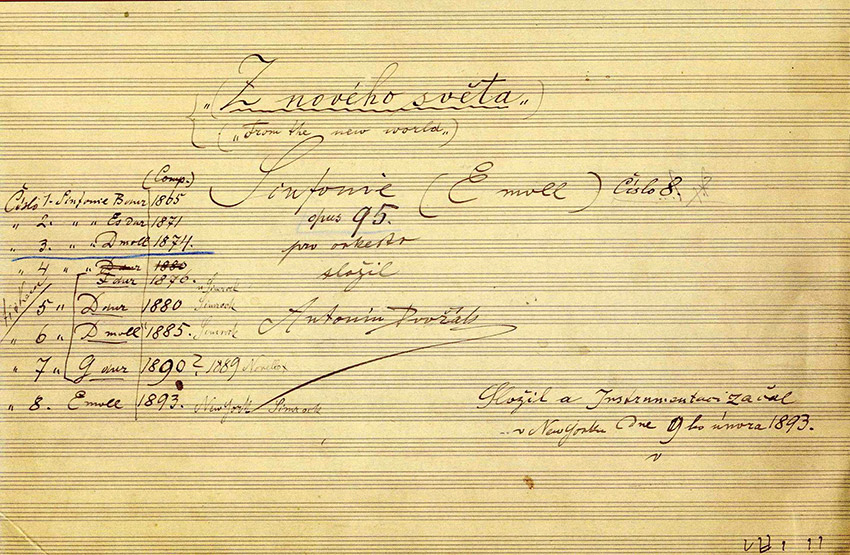 „Z nového světa„
(„From the new world„)
Sinfonie (E moll) Číslo 8.
opus 95.
pro orkestr
složil
Antonín Dvořák
(Comp.)
Číslo 1. Sinfonie B dur 1865
„ 2. „ „ Es dur 1871
„ 3. „ „ D moll 1874.
„ 4 „ „ D dur 1880
F dur 1870. Simrock
„ 5 „ D dur 1880 Simrock
„ 6 „ D moll 1885. Simrock
„ 7 „ G dur 1890? 1889 Novello
„ 8. E moll 1893. New York Simrock
Složil a Instrumentaci začal
v New Yorku Dne 9ho února 1893.